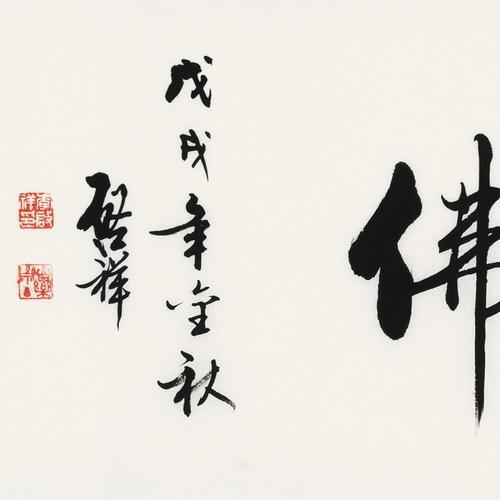 佛
戊戌年金秋
啟祥